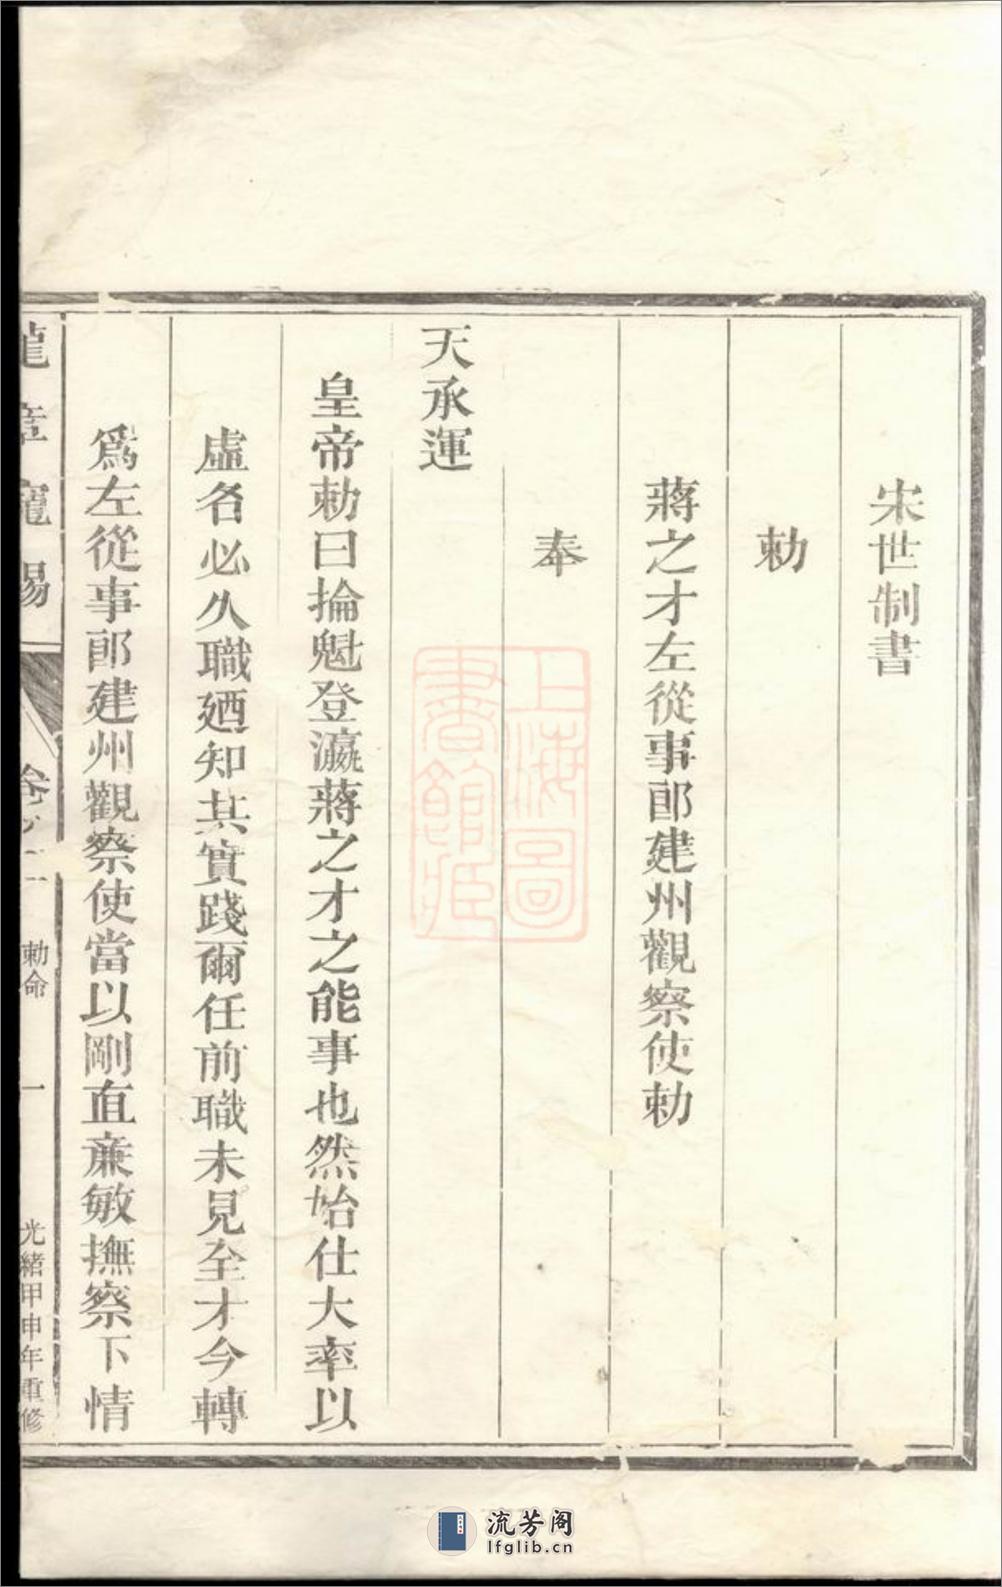 宋世制書
勅
蔣之才左從事郎建州觀察使勅
奉
天承運
皇帝勅曰掄魁登瀛蔣之才之能事也然始仕大率以
虛名必久職廼知其實踐爾任前職未見全才今轉
爲左從事郎建州觀察使當以剛直亷敏撫察下情
龍章寵錫
卷之二
勅命
一
光緒甲申年重修
上海圖
書館藏
流芳阁
lfglib.cn